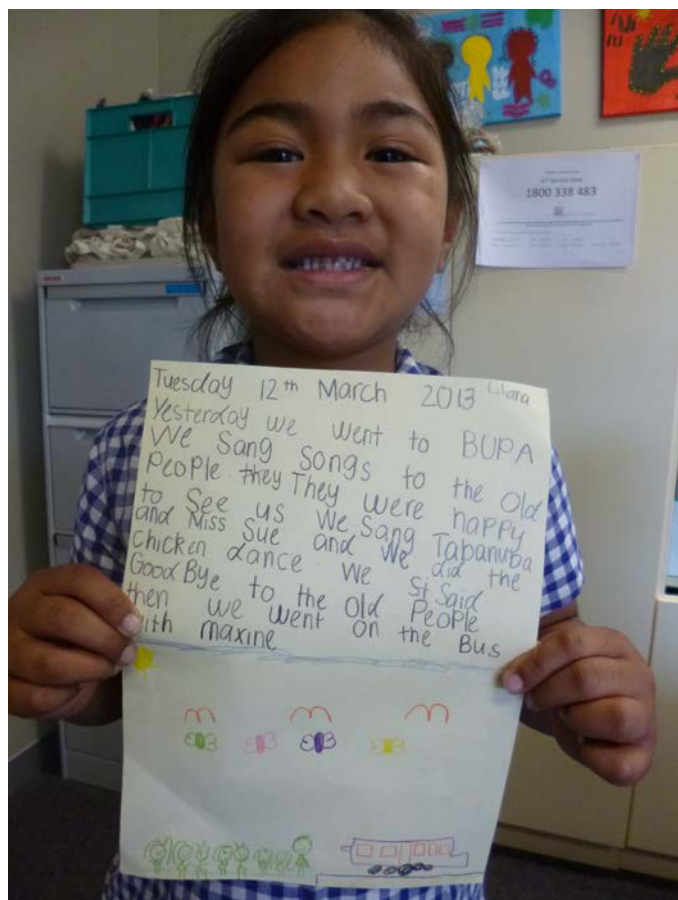 1800 338 483
Tuesday 12th March 2013 Liliana
Yesterday we went to BUPA
We Sang Songs to the Old
People they They were happy
to See us We Sang Tabanuba
and Miss Sue and We did the
chicken dance We St Said
GoodBye to the Old People
then we went on the Bus
with maxine